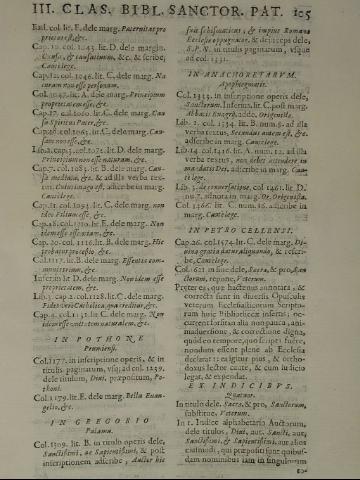 III. CLAS. BIBL. SANCTOR. PAT. 105
Ead. col. lit. F. dele marg. Paternitas pro
prietas est, &c.
Cap. 10. col. 1043. lit. D. dele marg.
Causa, & causatum, &c. & scribe,
Cautè lege.
Cap. 12. col. 1046. lit. C. dele marg. Na
turam non esse personam.
Col. 1047. lit. A. dele marg. Principium
proprietatem esse, &c.
Cap. 17. col. 1060. lit. C. dele marg.
Spiritus Pater, &c.
Cap. 18. col. 1065. lit. C. dele marg. Cau-
sam non esse, &c.
Cap. 3. col. 1076. lit. D. dele marg.
Principium non esse naturam, &c.
Cap. 7. col. 1083. lit. B. dele marg.
& ad illa verba tex-
tus, Cuius imago est, adscribe in marg.
Cautè lege.
Cap. 11. col. 1093. lit. C. dele marg. non
ideo Filium esse, &c.
Cap. 18. col. 1110. lit. E. dele marg. Non
idem esse essentiam, &c.
Cap. 20. col. 1116. lit. B. dele marg. Hic
probari processio, &c.
Col. 1117. lit. B. dele marg. Essentia com-
munissima, &c.
Infer. in lit. D. dele marg. Non idem esse
proprietatem, &c.
Lib. 3. cap. 2. col. 1128. lit. C. dele marg.
Fides verè Catholica quæ credit, &c.
Cap. 4. col. 1131. lit. C. dele marg. Non
idem esse unitatem naturalem, &c.
IN POTHONE
Prumiensi.
Col. 1177. in inscriptione operis, & in
titulis paginarum, usque ad col. 1239.
dele titulum, Divi, præpositum, Po-
thoni.
Col. 1179. lit. E. dele marg. Bella Euan-
gelio, &c.
IN GREGORIO
Palama.
Col. 1309. lit. B. in titulo operis dele,
Sanctissimi, ac Sapientissimi, & post
inscriptionem adscribe, Auctor hic
fuit schismaticus, & impius Romanæ
Ecclesiæ oppugnator, & deinceps dele,
S. P. N. in titulis paginarum, usque
ad col. 1331.
IN ANACHORETARUM
Apophtegmatis.
Col. 1333. in inscriptione operis dele,
Sanctorum. Inferius lit. C. post marg.
Abbatis Euagrij, adde, Origenista.
Lib. 2. col. 1334. lit. B. num. 9. ad illa
verba textus, Secundus autem est, &c.
adscribe in marg. Cautè lege.
Lib. 14. col. 1416. lit. A. num. 12. ad illa
verba textus, non debet attendere in
mandatis Dei, adscribe in marg. Cau-
tè lege.
Lib. 3. de conversatione, col. 1461. lit. D.
nu. 7. annota in marg. Or, Origenista.
Col. 1466. lit. C. num. 16. adscribe in
marg. Cautè lege.
IN PETRO CELLENSI.
Cap. 26. col. 1574. lit. C. dele marg. Di-
vina opera datur aliquando, & rescri-
be, Cautè lege.
Col. 1621. in fine dele, Sacra, & pro, San
ctorum, repone, Veterum.
Præter ea, quæ hactenus annotata, &
correcta sunt in diversis Opusculis
veterum Ecclesiasticorum Scripto-
rum huic Bibliothecæ insertis; oc-
current forsitan alia non pauca, ani-
maduersione, & correctione digna,
quòd eo tempore, quo scripti fuere,
nondum essent plene ab Ecclesia
declarata: religiosus, pius, & ortho-
doxus lector cautè, & cum iudicio
legat, & expendat.
EX INDICIBUS,
Quatuor.
In titulo dele, Sacra, & pro, Sanctorum,
substitue, Veterum.
In 1. Indice alphabetico Auctorum,
dele titulos, Divi, aut, Sancti, aut,
Sanctissimi, & Sapientissimi, aut alios
eiusmodi, qui præpositi sunt quibus-
dam nominibus tam in singulorum